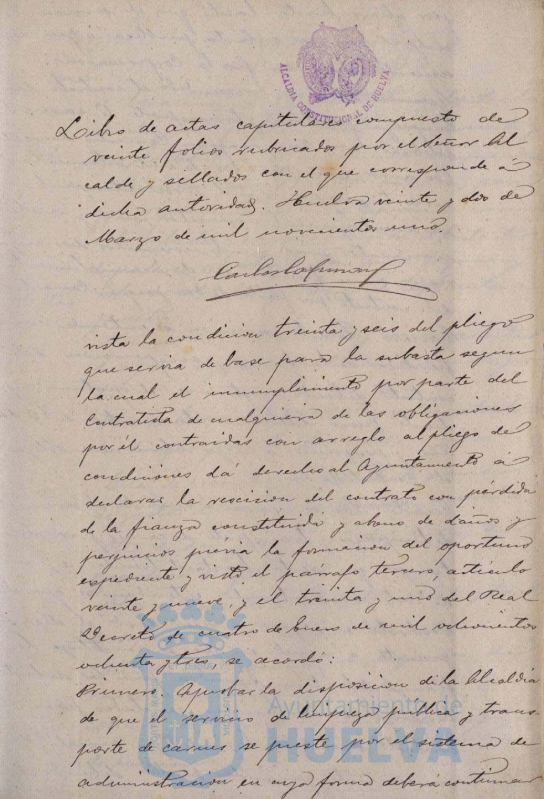 ALCALDIA CONSTITUCIONAL DE HUELVA
Libro de actas capitulares compuesto de
veinte folios rubricados por el Señor Al
calde y sellados con el que corresponde á
dicha autoridad. Huelva veinte y dos de
Marzo de mil novecientos uno.
vista la condicion treinta y seis del pliego
que servia de base para la subasta segun
la cual el incumplimiento por parte del
Contratista de cualquiera de las obligaciones
por él contraidas con arreglo al pliego de
condiciones dá derecho al Ayuntamiento á
declarar la rescision del contrato con pérdida
de la fianza constituida y abono de daños y
perjuicios prévia la formacion del oportuno
expediente y visto el párrafo tercero, artículo
veinte y nueve y el treinta y uno del Real
Decreto de cuatro de Enero de mil ochocientos
ochenta y tres, se acordó:
Primero. Aprobar la disposicion de la Alcaldía
de que el servicio de limpieza pública y trans-
porte de carnes se preste por el sistema de
administracion en cuya forma deberá continuar
Ayuntamiento de
HUELVA